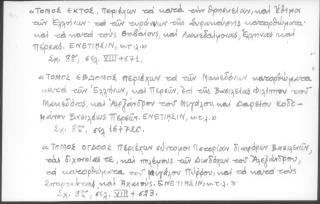 «ΤΟΜΟΣ ΕΚΤΟΣ, Περιέχων τα κατά των Θρασείων, και
των Ελλήνων· και των τυράννων της Συρακούσης κατορθώματα·
και τα κατά τους Θηβαίους, και Λακεδαίμονας, Έλληνας και
Πέρσας. ΕΝΕΤΙΗΣΙΝ, κ.τ.λ.»
Σχ. 8ον, σελ. VIII + 571.
«ΤΟΜΟΣ ΕΒΔΟΜΟΣ Περιέχων τα των Μακεδόνων κατορθώματα
κατά των Ελλήνων, και Περσών, επί της Βασιλείας Φιλίππου του
Μακεδόνος, και Αλεξάνδρου του Μεγάλου, και Δαρείου Κοδο-
μάνου Βασιλέως Περσών. ΕΝΕΤΙΗΣΙΝ, κ.τ.λ.»
Σχ. 8ον, σελ. 16+720.
«ΤΟΜΟΣ ΟΓΔΟΟΣ Περιέχων σύντομον Ιστορίαν διαφόρων Βασιλειών,
τας διχονοίας τε, και πολέμους των Διαδόχων του Αλεξάνδρου,
τα κατορθώματα του Μεγάλου Πύρρου, και τα κατά τους
Σπαρτιάτας και Αχαιούς. ΕΝΕΤΙΗΣΙΝ, κ.τ.λ.»
Σχ. 8ον, σελ. VIII + 623.